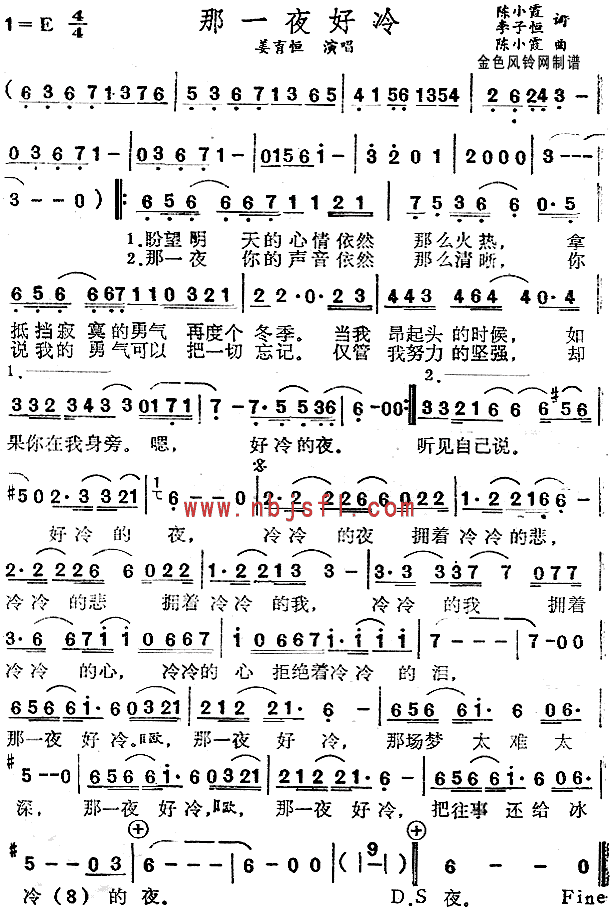 1=E 4/4 那一夜好冷 陈小霞 李子恒 词
姜育恒 演唱 陈小霞 曲
金色风铃网制谱
( 6 3 6 7 1 3 7 6 | 5 3 6 7 1 3 6 5 | 4 1 5 6 1 3 5 4 | 2 6 2 4 3 - |
0 3 6 7 1 - | 0 3 6 7 1 - | 0 1 5 6 1 - | 3 2 0 1 | 2 0 0 0 | 3 - - - |
3 - - 0 ) ‖: 6 5 6 6 6 7 1 1 1 2 1 | 7 5 3 6 6 0·5 |
1.盼望明 天的心情依然 那么火热， 拿
2.那一夜 你的声音依然 那么清晰， 你
6 5 6 6 6 7 1 1 0 3 2 1 | 2 2·0·2 3 | 4 4 3 4 6 4 4 0·4 |
抵挡寂 寞的勇气 再度个 冬季。 当我 昂起头的时候， 如
说我的 勇气可以 把一切 忘记。 仅管 我努力的坚强， 却
1. 2.
3 3 2 3 4 3 3 0 1 7 1 | 7 - 7·5 5 3 6 | 6 - 0 0 :‖ 3 3 2 1 6 6 6 #5 6 |
果你在我身旁。嗯， 好冷的夜。 听见自己说。
#5 0 2·3 3 2 1 | 6 - - 0 | 2·2 2 2 6 6 0 2 2 | 1·2 2 2 1 6 6 - |
好冷 的 夜， 冷冷 的夜 拥着冷冷的悲，
www.nbjsfl.com
2·2 2 2 6 6 0 2 2 | 1·2 2 2 1 3 3 - | 3·3 3 3 7 7 0 7 7 |
冷冷 的悲 拥着冷冷 的我， 冷冷 的我 拥着
3·6 6 7 1 1 0 6 6 7 | 1 0 6 6 7 1 1·1 1 1 | 7 - - - | 7 - 0 0 |
冷冷 的心， 冷冷的 心 拒绝着冷冷 的 泪，
6 5 6 6 1·6 0 3 2 1 | 2 1 2 2 1·6 - | 6 5 6 6 1·6 0 6· |
那一夜 好冷。噢， 那一夜 好 冷， 那场梦 太 难 太
#5 - - 0 | 6 5 6 6 1·6 0 3 2 1 | 2 1 2 2 1·6 - | 6 5 6 6 1·6 0 6· |
深， 那一夜 好冷， 那一夜 好 冷， 把往事 还 给 冰
#5 - - 0 3 | 6 - - - | 6 - 0 0 | ( | 9 | ) | 5 - - 6 - 0 ‖
冷 (8) 的 夜。 D.S 夜。 Fine